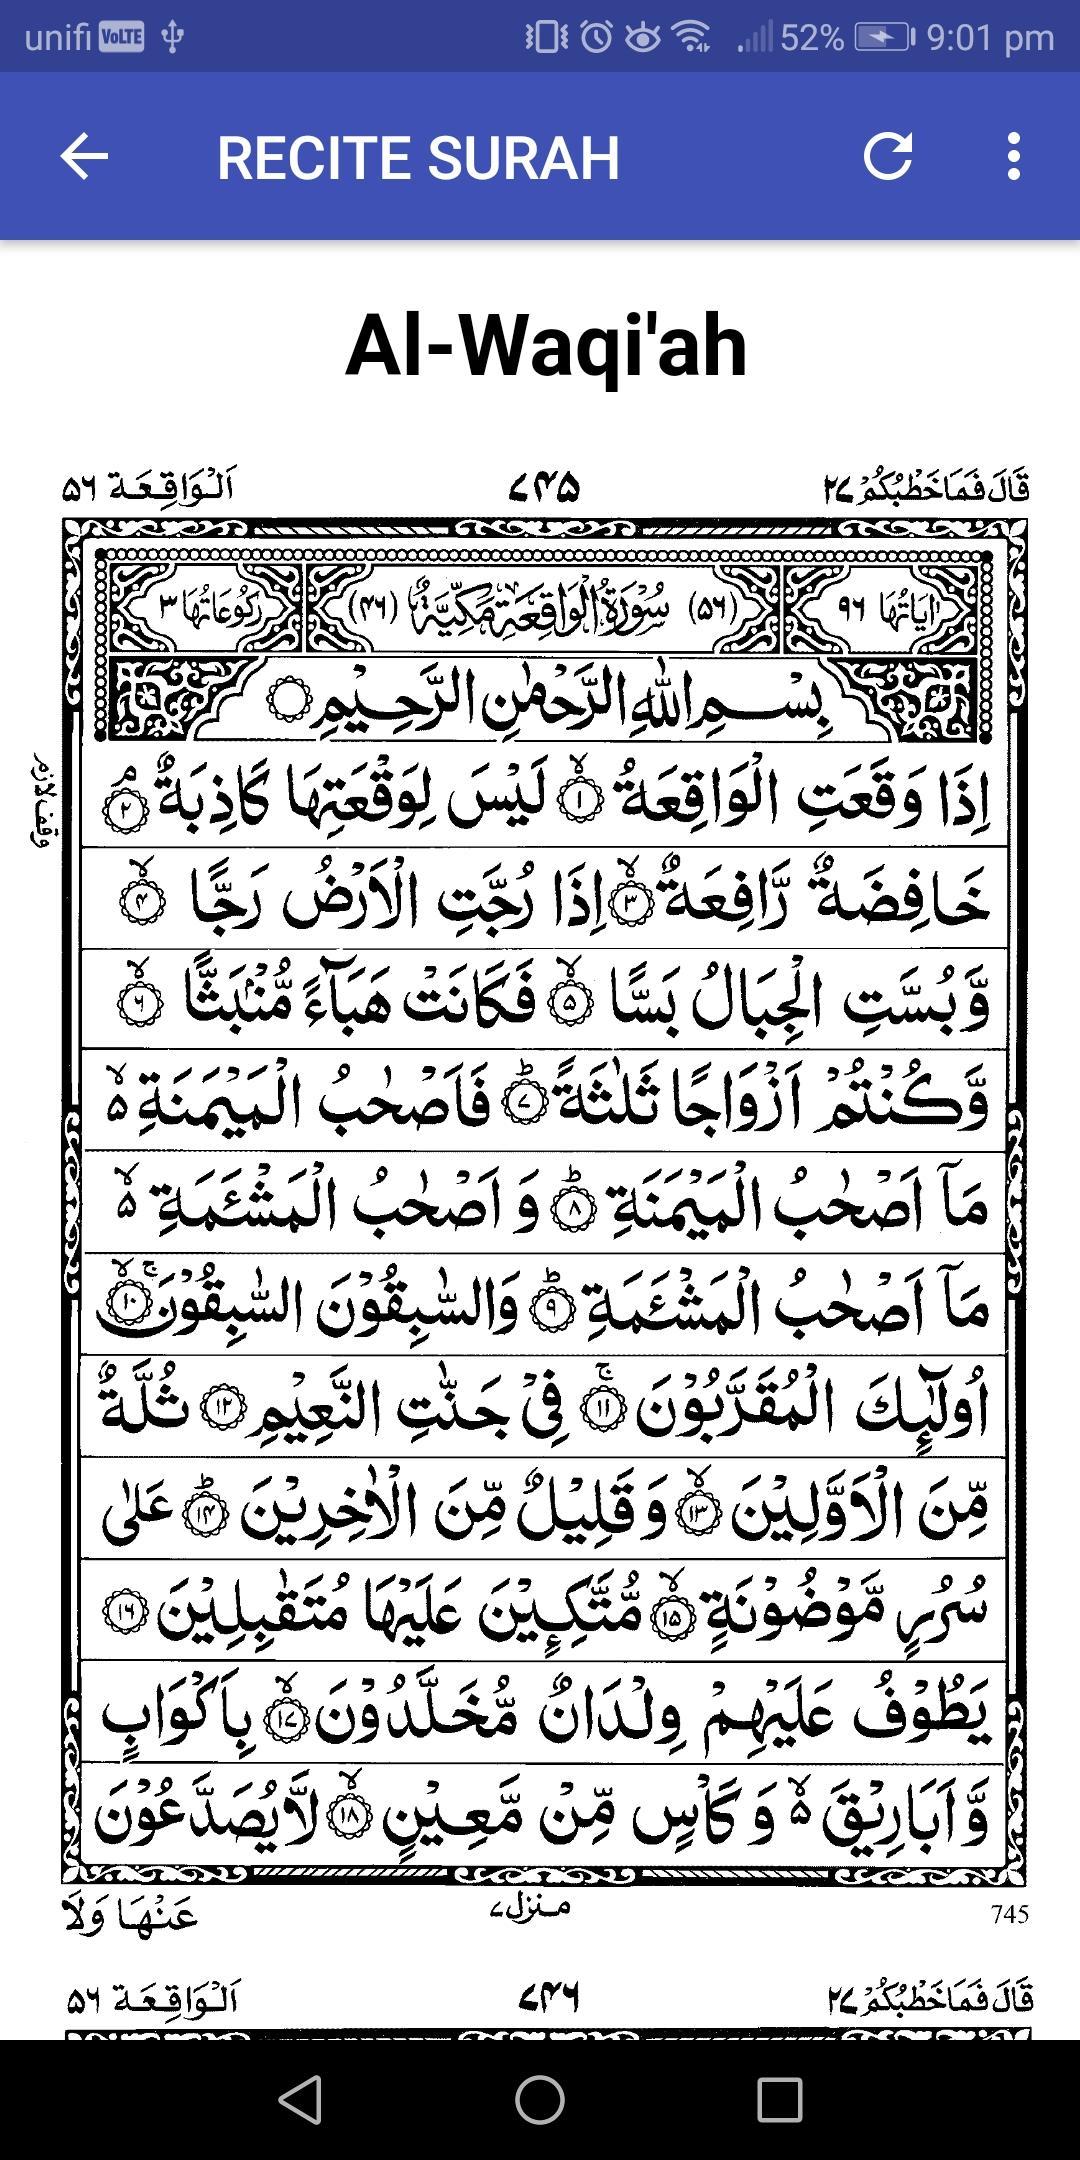 unifi VoLTE 52% 9:01 pm
RECITE SURAH
Al-Waqi'ah
قَالَ فَمَا خَطْبُكُمْ ٢٧ ٧٤٥ اَلْوَاقِعَة ٥٦
اٰيَاتُهَا ٩٦ (٥٦) سُوْرَةُ الْوَاقِعَةِ مَكِّيَّةٌ (٤٦) رُكُوْعَاتُهَا ٣
بِسْمِ اللّٰهِ الرَّحْمٰنِ الرَّحِيْمِ
اِذَا وَقَعَتِ الْوَاقِعَةُ ۙ﴿١﴾ لَيْسَ لِوَقْعَتِهَا كَاذِبَةٌ ۘ﴿٢﴾
وقف لازم
خَافِضَةٌ رَّافِعَةٌ ۙ﴿٣﴾ اِذَا رُجَّتِ الْاَرْضُ رَجًّا ۙ﴿٤﴾
وَّبُسَّتِ الْجِبَالُ بَسًّا ۙ﴿٥﴾ فَكَانَتْ هَبَآءً مُّنْۢبَثًّا ۙ﴿٦﴾
وَّكُنْتُمْ اَزْوَاجًا ثَلٰثَةً ؕ﴿٧﴾ فَاَصْحٰبُ الْمَيْمَنَةِ ۙ۵
مَاۤ اَصْحٰبُ الْمَيْمَنَةِ ؕ﴿٨﴾ وَ اَصْحٰبُ الْمَشْـَٔمَةِ ۙ۵
مَاۤ اَصْحٰبُ الْمَشْـَٔمَةِ ؕ﴿٩﴾ وَالسّٰبِقُوْنَ السّٰبِقُوْنَ ۚۙ﴿١٠﴾
اُولٰٓئِكَ الْمُقَرَّبُوْنَ ۚ﴿١١﴾ فِيْ جَنّٰتِ النَّعِيْمِ ﴿١٢﴾ ثُلَّةٌ
مِّنَ الْاَوَّلِيْنَ ۙ﴿١٣﴾ وَ قَلِيْلٌ مِّنَ الْاٰخِرِيْنَ ؕ﴿١٤﴾ عَلٰى
سُرُرٍ مَّوْضُوْنَةٍ ۙ﴿١٥﴾ مُّتَّكِـِٕيْنَ عَلَيْهَا مُتَقٰبِلِيْنَ ﴿١٦﴾
يَطُوْفُ عَلَيْهِمْ وِلْدَانٌ مُّخَلَّدُوْنَ ۙ﴿١٧﴾ بِاَكْوَابٍ
وَّ اَبَارِيْقَ ۙ۵ وَ كَاْسٍ مِّنْ مَّعِيْنٍ ۙ﴿١٨﴾ لَّا يُصَدَّعُوْنَ
745 منزل٧ عَنْهَا وَلَا
قَالَ فَمَا خَطْبُكُمْ ٢٧ ٧٤٦ اَلْوَاقِعَة ٥٦